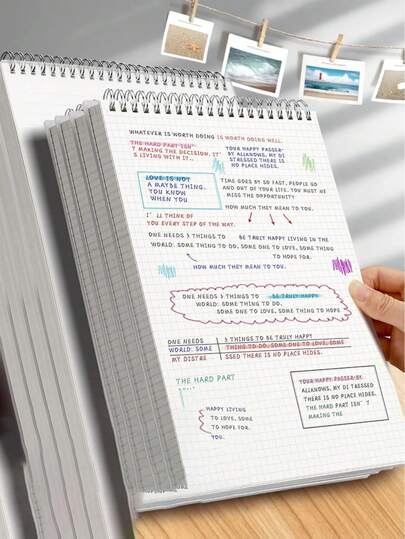 WHATEVER IS WORTH DOING IS WORTH DOING WELL.
THE HARD PART ISN'
Y MAKING THE DECISION, IT'
S LIVING WITH IT...
YOUR HAPPY PASSER-BY
ALLKNOWS, MY DI
STRESSED THERE IS
NO PLACE HIDES.
LOVE IS NOT
A MAYBE THING.
YOU KNOW
WHEN YOU
TIME GOES BY SO FAST, PEOPLE GO
AND OUT OF YOUR LIFE. YOU MUST NE
MISS THE OPPORTUNITY
HOW MUCH THEY MEAN TO YOU.
I' LL THINK OF
YOU EVERY STEP OF THE WAY.
ONE NEEDS 3 THINGS TO BE TRULY HAPPY LIVING IN THE
WORLD: SOME THING TO DO, SOME ONE TO LOVE, SOME THING
TO HOPE FOR.
HOW MUCH THEY MEAN TO YOU.
ONE NEEDS 3 THINGS TO BE TRULY HAPPY
WORLD: SOME THING TO DO,
SOME ONE TO LOVE, SOME THING TO HOPE
ONE NEEDS 3 THINGS TO BE TRULY HAPPY
WORLD: SOME THING TO DO, SOME ONE TO LOVE, SOME
MY DISTRE SSED THERE IS NO PLACE HIDES.
THE HARD PART
HAPPY LIVING
TO LOVE, SOME
TO HOPE FOR.
YOU.
YOUR HAPPY PASSER-BY
ALLKNOWS, MY DI STRESSED
THERE IS NO PLACE HIDES.
THE HARD PART ISN' Y
MAKING THE